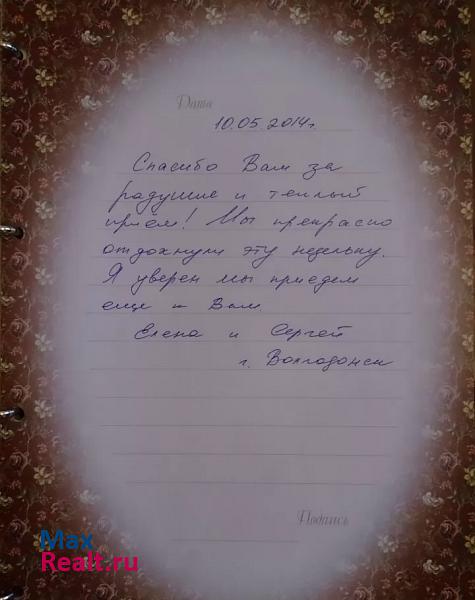 Дата
10.05.2014г.
Спасибо Вам за
радушие и теплый
приём! Мы прекрасно
отдохнули эту недельку.
Я уверен мы приедем
еще к Вам.
Елена и Сергей
г. Волгодонск
Подпись
Max
Realt.ru